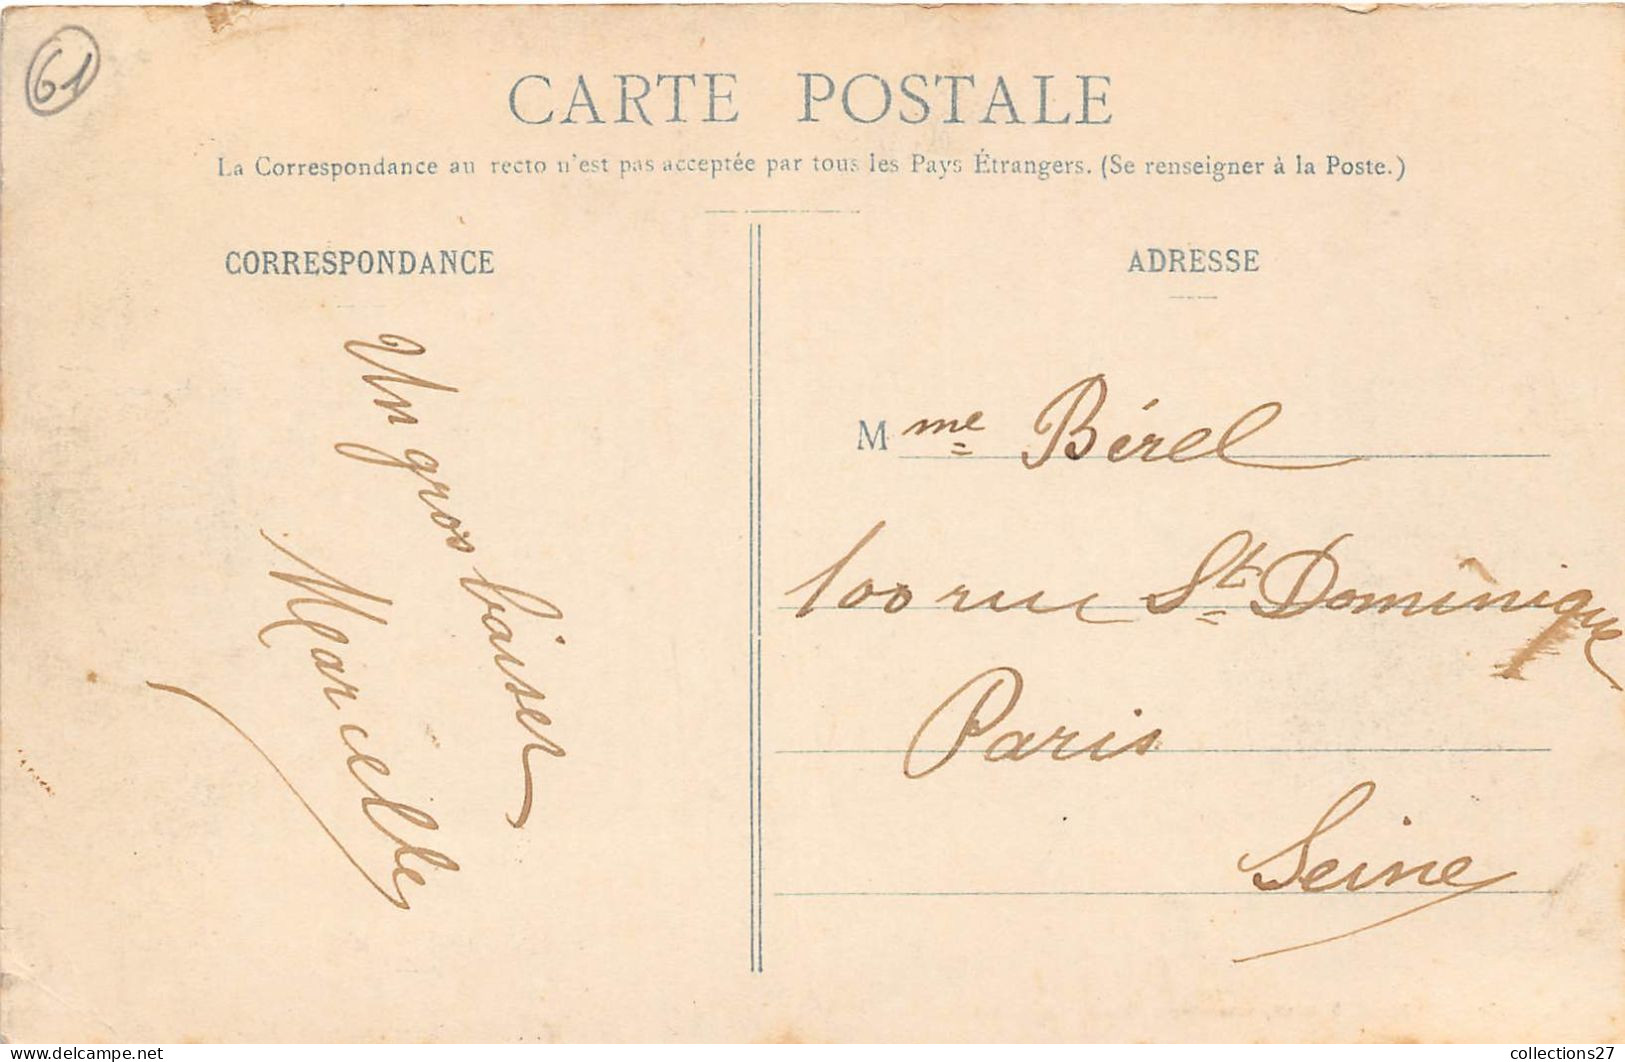 61
CARTE POSTALE
La Correspondance au recto n'est pas acceptée par tous les Pays Étrangers. (Se renseigner à la Poste.)
CORRESPONDANCE
Un gros baiser
Marcelle
ADRESSE
Mme Bérel
100 rue St Dominique
Paris
Seine
www.delcampe.net
collections27